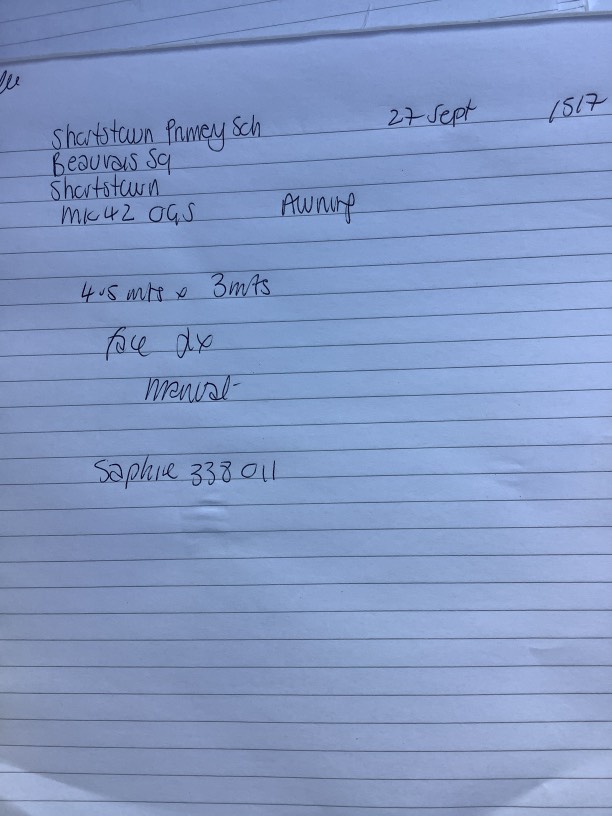 Shortstown Primery Sch 27 Sept 1517
Beauvais Sq
Shortstown
MK42 0GS Awning
4.5 mts x 3mts
face dx
manual
Saphire 338 011